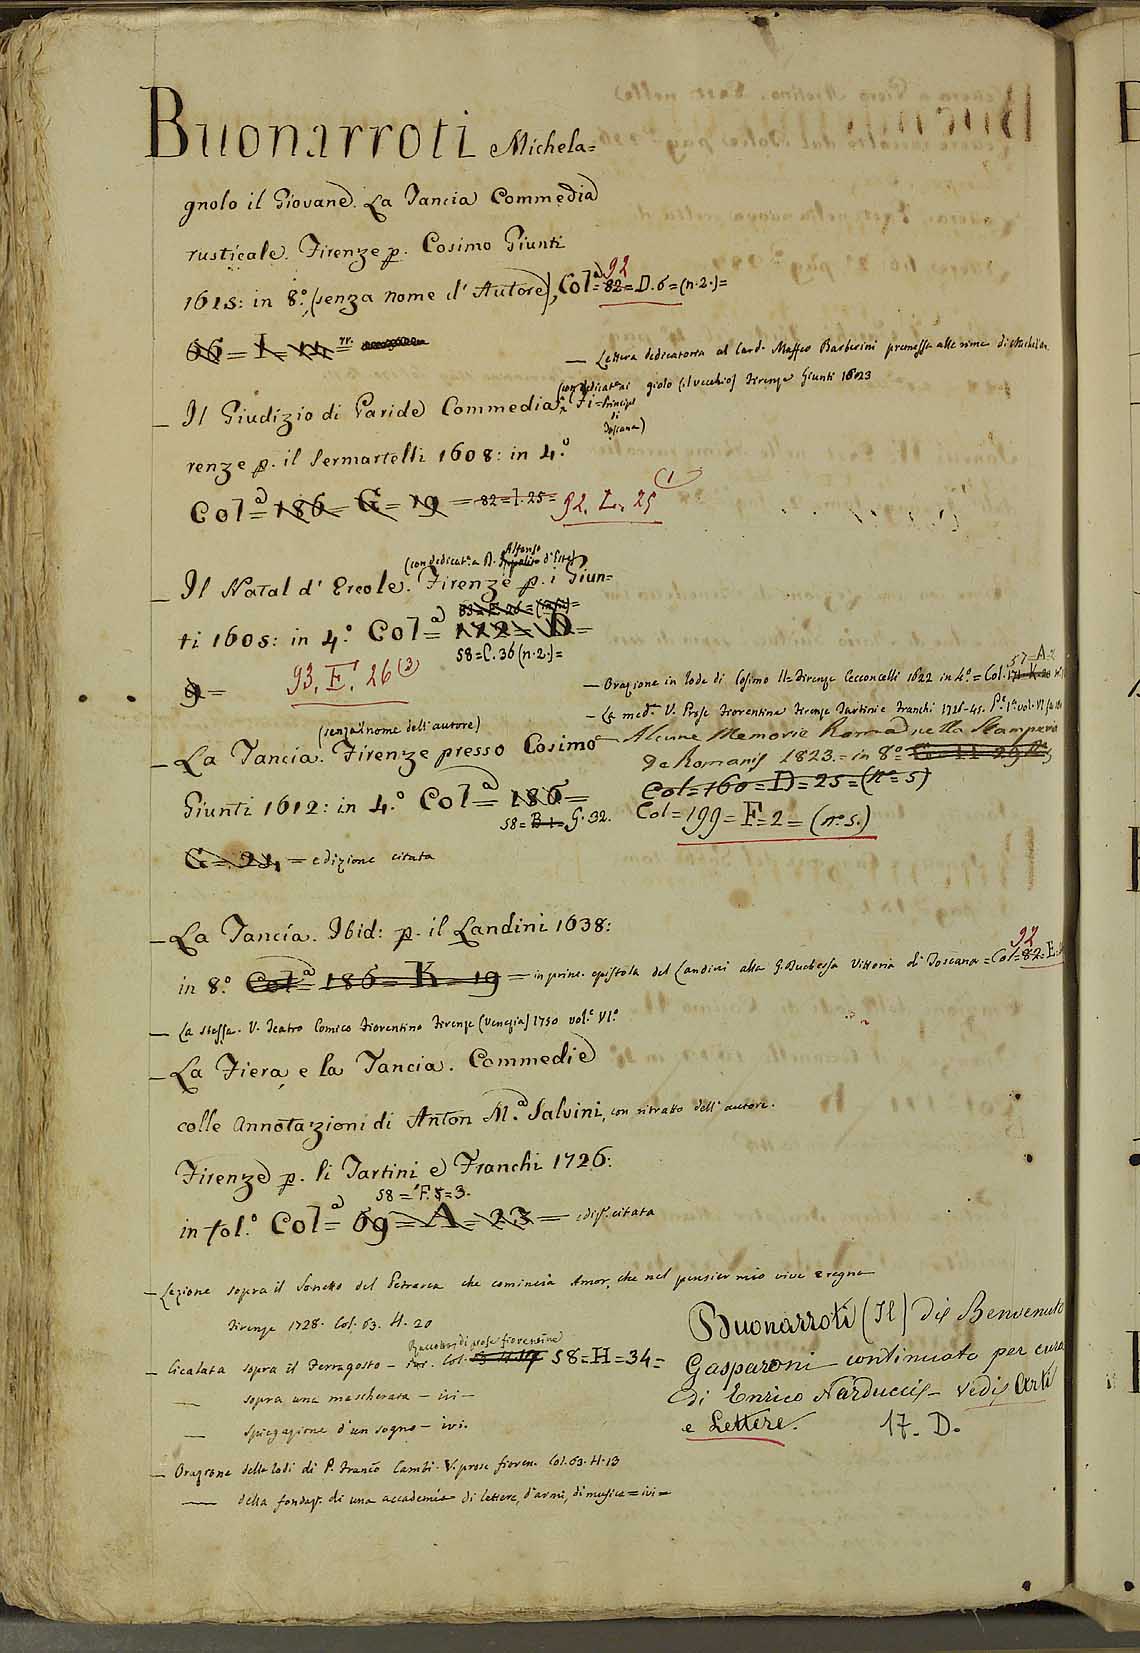 Buonarroti Michela=
gnolo il Giovane. La Tancia Commedia
rusticale. Firenze p. Cosimo Giunti
1615: in 8.º (senza nome d'Autore), Colª= 82= D. 6= (n. 2.)=
92
66= I= 14=
— Lettera dedicatoria al Card. Maffeo Barberini premessa alle rime di Michelan
giolo (il vecchio) Firenze Giunti 1623
— Il Giudizio di Paride Commedia. Fi=
(con dedicat. ai Principi di Toscana)
renze p. il Sermartelli 1608: in 4.º
Colª= 186= G= 19 = 82= I. 25= 92. L. 25 (1)
(con dedicatª a D. Ippolito Alfonso d'Este)
— Il Natal d'Ercole. Firenze p. i Giun=
ti 1605: in 4.º Colª= 172= D=
58= C. 36 (n. 2.)=
9= 93. E. 26 (3)
— Orazione in lode di Cosimo II= Firenze Cecconcelli 1622 in 4º.= Col. 171 K. 20
57= A. 2
— La medª. V. Prose Fiorentine Firenze Tartini e Franchi 1716-45. Pe. 1ª vol. VI
Alcune Memorie Roma nella Stamperia
De Romanis 1823.= in 8º= G= 11= 29
Col= 160= D= 25= (nº 5)
Col= 199= F= 2= (nº 5.)
(senza il nome dell'autore)
— La Tancia. Firenze presso Cosimo
Giunti 1612: in 4.º Colª= 186=
58= B 1= G. 32.
G= 21, = edizione citata
— La Tancia. Ibid: p. il Landini 1638:
in 8.º Colª= 186= K= 19 = in princ. epistola del Landini alla G. Duchessa Vittoria di Toscana= Col= 82= E.
92
— La stessa. V. Teatro Comico Fiorentino Firenze (Venezia) 1750 vol.e VI.º
— La Fiera, e la Tancia. Commedie
colle Annotazioni di Anton M.ª Salvini, con ritratto dell'autore.
Firenze p. li Tartini e Franchi 1726:
58= F. 5= 3.
in fol.º Colª= 69= A= 23= ediz. citata
— Lezione sopra il Sonetto del Petrarca che comincia Amor, che nel pensier mio vive e regna
Firenze 1728. Col. 63. H. 20
Raccolta di prose fiorentine
— Cicalata sopra il Ferragosto — Col. 63 H. 19 58= H= 34=
— sopra una mascherata — ivi —
— spiegazione d'un sogno — ivi.
— Orazione delle lodi di P. Franco Cambi. V. prose fioren. Col. 63. H. 13
— della fondaz. di una accademia di lettere, d'armi, di musica = ivi =
Buonarroti (Il) di Benvenuto
Gasparoni continuato per cura
di Enrico Narducci — Vedi Arti
e Lettere. 17. D.